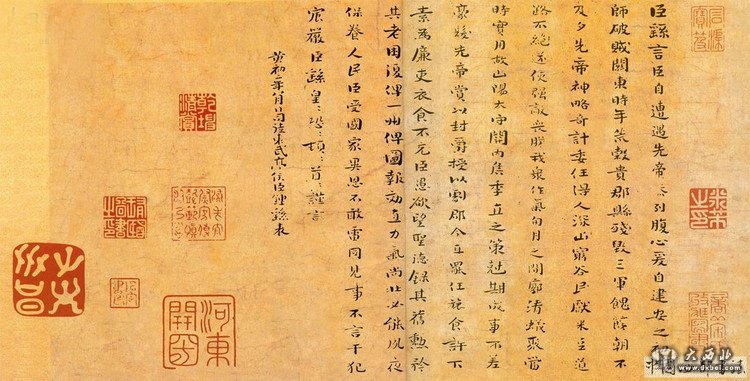 臣繇言臣自遭遇先帝忝列腹心爰自建安之初王
師破賊關東時年荒穀貴郡縣殘毀三軍餽饟朝不
及夕先帝神略奇計委任得人深山窮谷民獻米豆道
路不絕遂使強敵喪膽我衆作氣旬月之間廓清蟻聚當
時實用故山陽太守關內侯季直之策剋期成事不差
豪髮先帝賞以封爵授以劇郡今直罷任旅食許下
素爲廉吏衣食不充臣愚欲望聖德錄其舊勳矜
其老困復俾一州俾圖報効直力氣尚壯必能夙夜
保養人民臣受國家異恩不敢雷同見事不言干犯
宸嚴臣繇皇=恐=頓=首=謹言
黃初二年八月日司徒東武亭侯臣鍾繇表
乾坤清賞
河東
www.dxbei.com